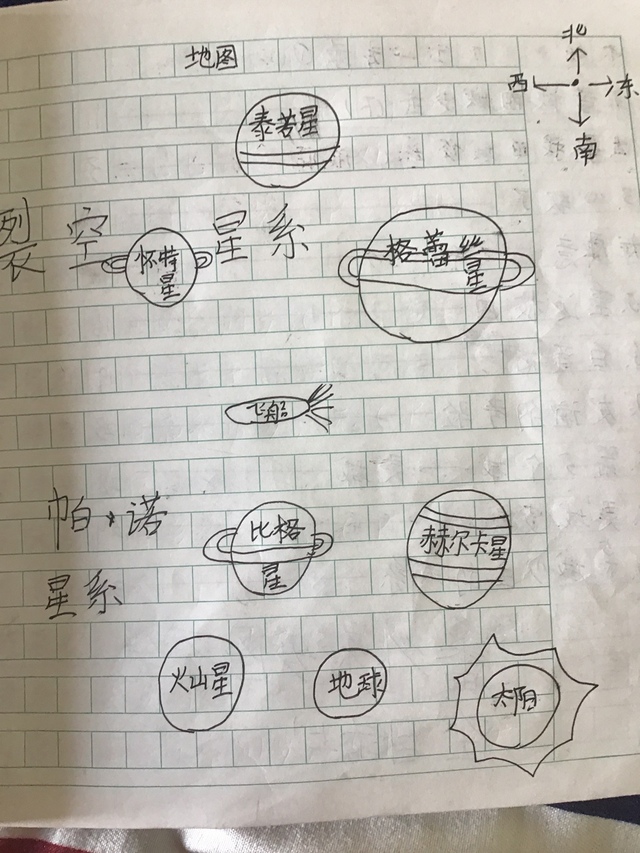 地图
北
西 东
南
泰若星
裂空星系
怀特星
格蕾丝星
飞船
帕·诺
星系
比格星
赫尔卡星
火山星
地球
太阳